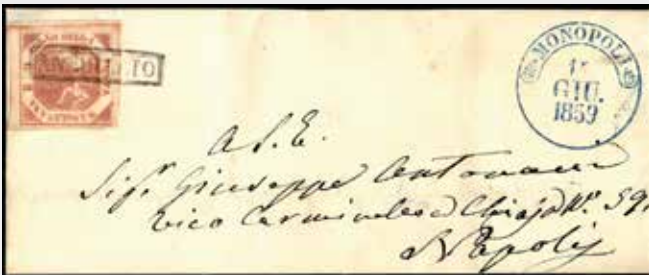 ANNULLATO
MONOPOLI
GIU.
1859
A S. E.
Sigr Giuseppe
Vico Carminiello a Chiaja No. 59
Napoli